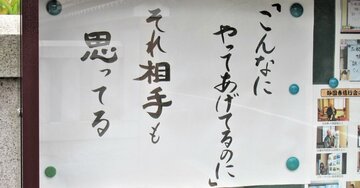 「こんなに
やってあげてるのに」
それ相手も
思ってる